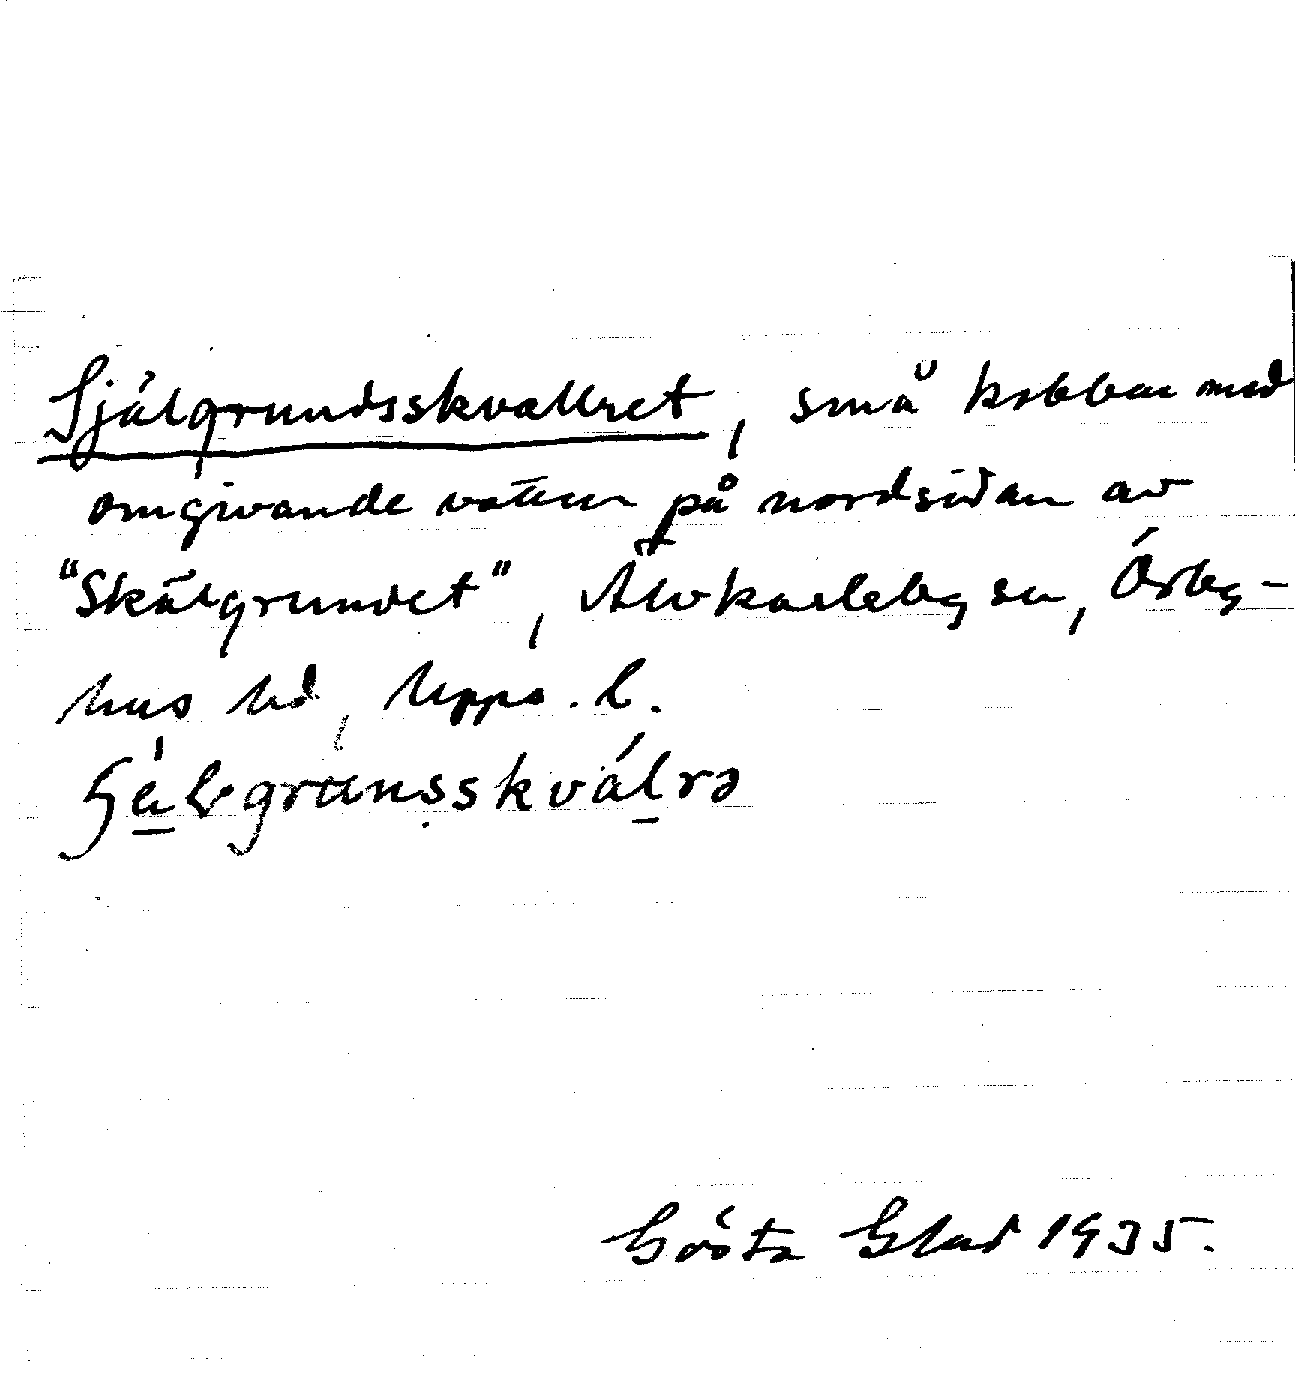 Själgrundsskvallret, små kobbar med
omgivande vatten på nordsidan av
"Skälgrundet", Älvkarleby sn, Örby-
hus hd, Upps. l.
Gösta Glad 1935.